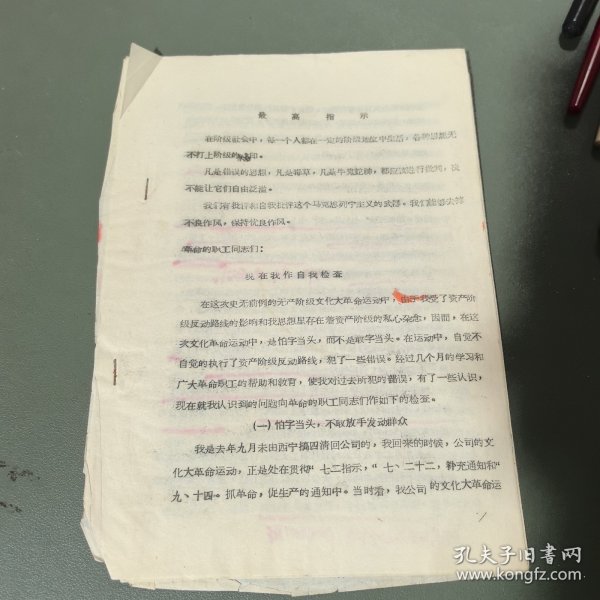 最高指示
在阶级社会中，每一个人都在一定的阶级地位中生活，各种思想无
不打上阶级的烙印。
凡是错误的思想，凡是毒草，凡是牛鬼蛇神，都应该进行批判，决
不能让它们自由泛滥。
我们有批评和自我批评这个马克思列宁主义的武器。我们能够去掉
不良作风，保持优良作风。
革命的职工同志们：
现在我作自我检查
在这次史无前例的无产阶级文化大革命运动中，由于我受了资产阶
级反动路线的影响和我思想里存在着资产阶级的私心杂念，因而，在这
次文化革命运动中，是怕字当头，而不是敢字当头。在运动中，自觉不
自觉的执行了资产阶级反动路线，犯了一些错误。经过几个月的学习和
广大革命职工的帮助和教育，使我对过去所犯的错误，有了一些认识，
现在就我认识到的问题向革命的职工同志们作如下的检查。
(一)怕字当头，不敢放手发动群众
我是去年九月末由西宁搞四清回公司的，我回来的时候，公司的文
化大革命运动，正是处在贯彻“七二指示，“七、二十二，补充通知和“
九、十四。抓革命，促生产的通知中。当时看，我公司的文化大革命运
孔夫子旧书网
www.kongfz.com